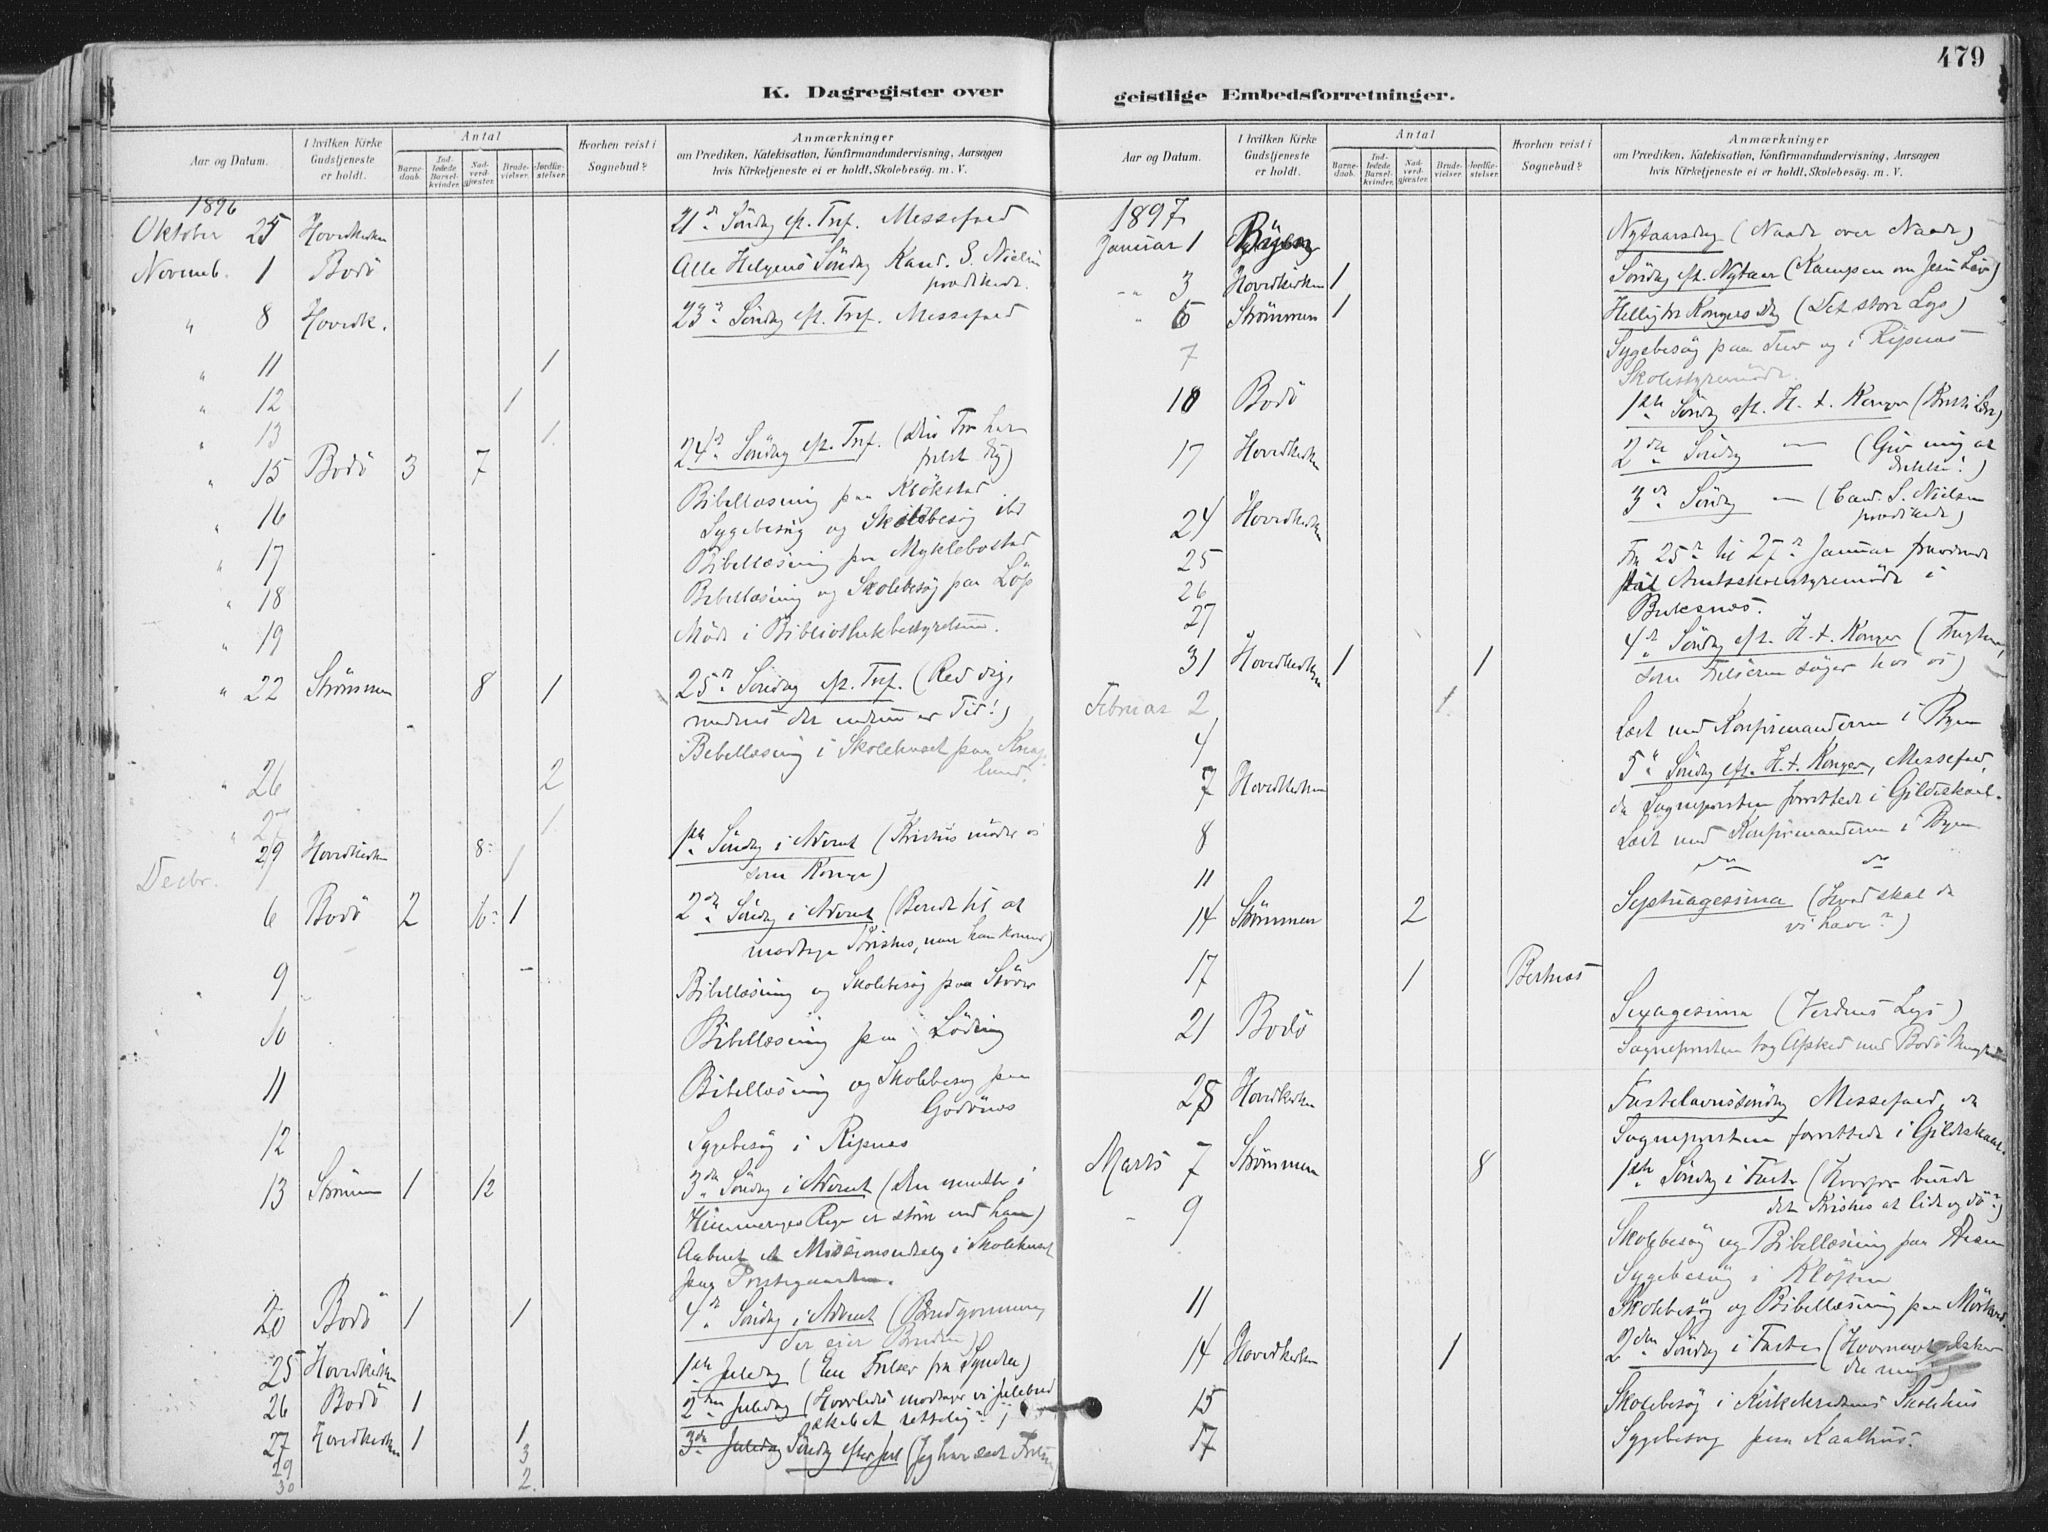 479
K. Dagregister over
geistlige Embedsforretninger.
Aar og Datum.
I hvilken Kirke Gudstjeneste er holdt.
Antal
Barnedaab.
Indledede Barselkvinder.
Nadverdgjæster.
Brudevielser.
Jordfæstelser.
Hvorhen reist i Sognebud?
Anmærkninger
om Prædiken, Katekisation, Konfirmandundervisning, Aarsagen
hvis Kirketjeneste ei er holdt, Skolebesøg. m. V.
1896
Oktober 25 Hovedkirken 21de Søndag ef. Tref. Messefald
Novemb. 1 Bodö Alle Helgens Søndag Kand. S. Nielsen
prædikede.
" 8 Hovedk. 23de Søndag ef. Tref. Messefald
" 11 1
" 12 1
" 13 1.
" 15 Bodö 3 7 24de Søndag ef. Tref. (Din Tro har
frelst dig)
" 16 Bibellæsning paa Klökstad
Sygebesøg og Skolebesøg ibd
" 17 Bibellæsning paa Myklebostad
" 18 Bibellæsning og Skolebesøg paa Löp
" 19 Möde i Bibliothekbestyrelsen.
" 22 Strømmen 8 1 25de Søndag ef. Tref. (Red dig,
medens det endnu er Tid!)
Bibellæsning i Skolehuset paa Knap
lund.
" 26 2
" 27 1
29 Hovedkirken 8 1 1ste Søndag i Advent (Kristus möder os
som Konge)
Decbr.
6 Bodö 2 10 1 2den Søndag i Advent (Beredt til at
modtage Kristus, naar han kommer)
9 - Bibellæsning og Skolebesøg paa Støver
10 Bibellæsning paa Löding
11 Bibellæsning og Skolebesøg paa
Godönes
12 Sygebesøg i Ripnes
13 Strømmen 1 12 3die Søndag i Advent (Den mindste i
Himmeriges Rige er større end han)
Aabnet et Missionsudsalg i Skolehuset
paa Prestegaarden.
20 Bodö 1 1 4de Søndag i Advent (Brudgommen,
der eier Bruden)
25 Hovedkirken 1ste Juledag (En Frelser fra Synden)
26 Bodö 1 2den Juledag (Hvorledes modtager vi Julebud
skabet rettelig?)
27 Hovedkirken 1 1 3die Juledag Søndag efter Jul (Jeg har seet Frelsen
29 3
30 2.
Aar og Datum.
I hvilken Kirke Gudstjeneste er holdt.
Antal
Barnedaab.
Indledede Barselkvinder.
Nadverdgjæster.
Brudevielser.
Jordfæstelser.
Hvorhen reist i Sognebud?
Anmærkninger
om Prædiken, Katekisation, Konfirmandundervisning, Aarsagen
hvis Kirketjeneste ei er holdt, Skolebesøg. m. V.
1897
Januar 1 Byen Nytaarsdag (Naade over Naade)
" 3 Hovedkirken 1 Søndag ef. Nytaar (Kampen om Jesu Liv)
" 6 Strømmen 1 Hellig tre Kongers Dag (Det store Lys)
7 Sygebesøg paa og i Ripnes
Skolestyremöde.
10 Bodö 1ste Søndag ef. H. t. Konger
17 Hovedkirken 2den Søndag — (Giv mig at
drikke!)
24 Hovedkirken 3die Søndag — (Cand. S. Nielsen
prædikede)
25 Fra 25de til 27de Januar fraværende
26 paa Amtsskolestyremöde i
27 Buksnes.
31 Hovedkirken 1 1 4de Søndag ef. H. t. Konger (Frugten,
som Frelseren søger hos os)
Februar 2 1.
4 Læst med Konfirmanderne i Byen
7 Hovedkirken 5te Søndag ef. H. t. Konger, Messefald,
da Sognepresten forrettede i Gildeskaal.
8 Læst med Konfirmanderne i Byen
11 do do
14 Strømmen 2 Septuagesima (Hvad skal da
vi have?)
17 1 Bertnes
21 Bodö Sexagesima (Verdens Lys)
Sognepresten tog Afsked med Bodö Menighed
28 Hovedkirken Fastelavnssøndag Messefald, da
Sognepresten forrettede i Gildeskaal.
Marts 7 Strømmen 8 1ste Søndag i Faste (Hvorfor burde
det Kristus at lide og dö?)
" 9 Skolebesøg og Bibellæsning paa
Sygebesøg i Klöften
11 Skolebesøg og Bibellæsning paa Mörkved.
14 Hovedkirken 1 2den Søndag i Faste (Hvormeget elsker
du mig)
15 Skolebesøg i Kirkekredsens Skolehus
17 Sygebesøg paa Kaalhus.